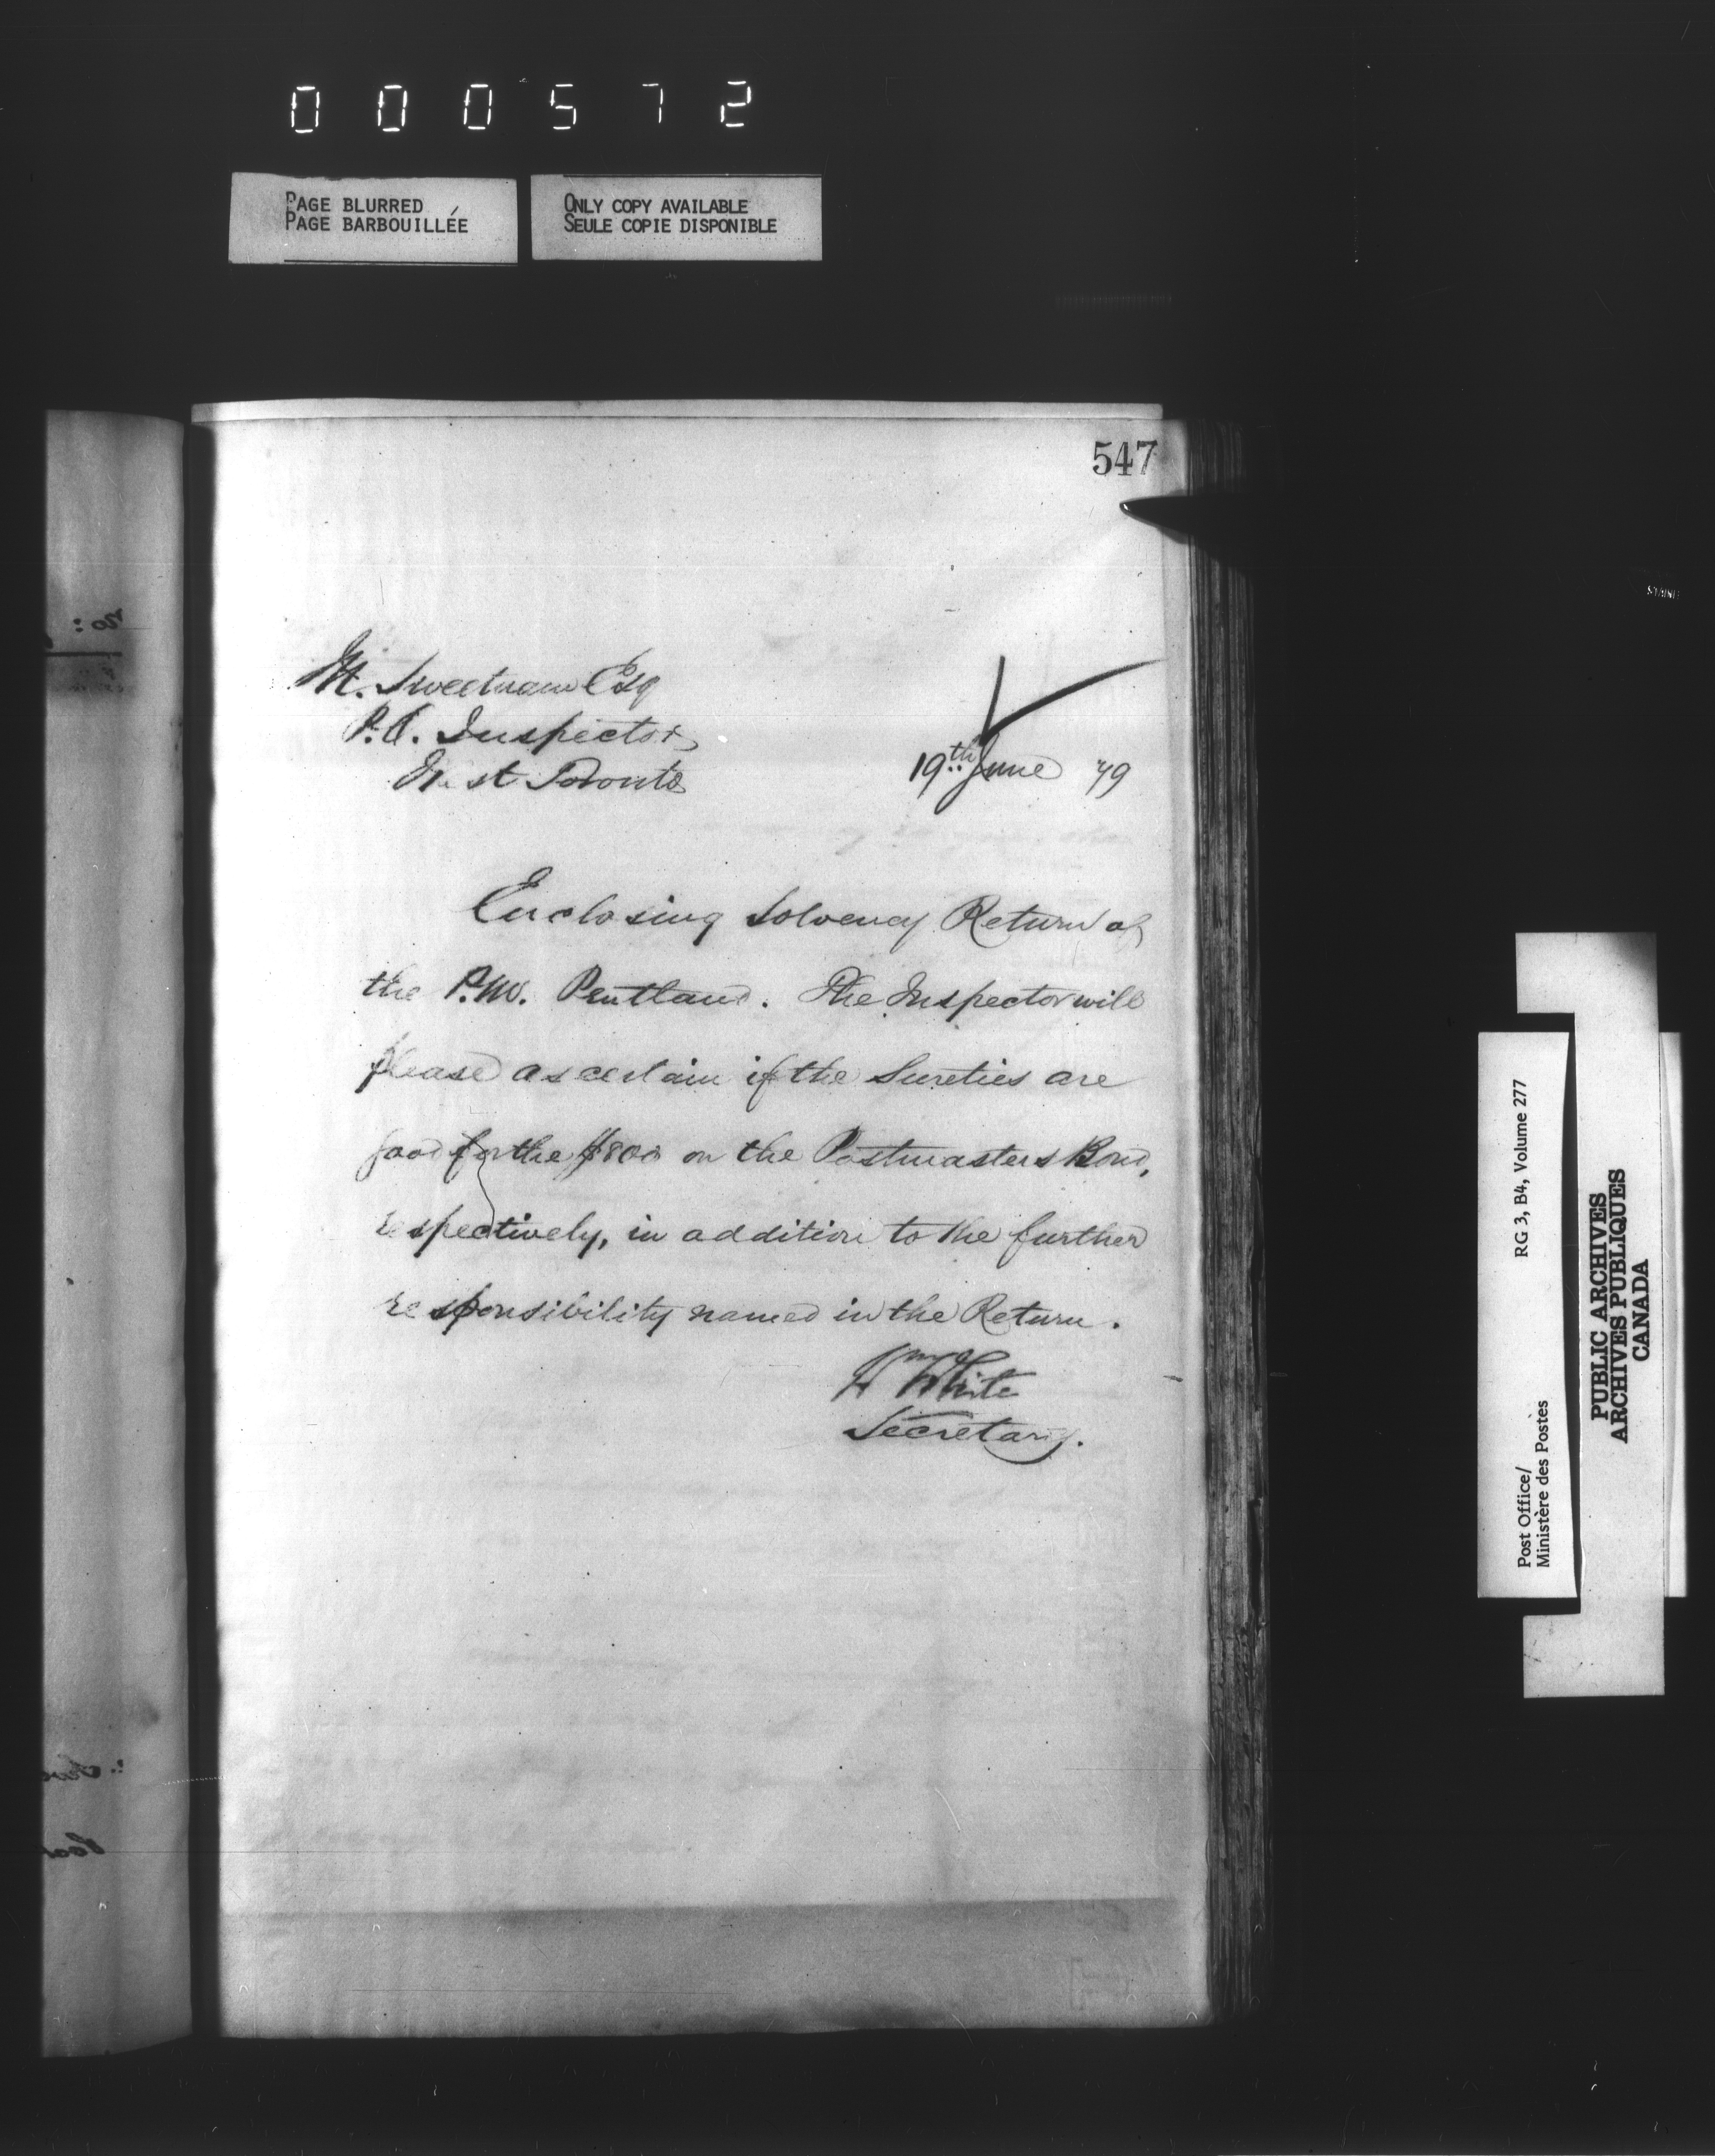 000572
PAGE BLURRED
PAGE BARBOUILLÉE
ONLY COPY AVAILABLE
SEULE COPIE DISPONIBLE
547
M. Sweetnam Esq
P.O. Inspector
West Toronto
19th June 79
Enclosing Solvency Return of
the P.M. Pentland. The Inspector will
please ascertain if the Sureties are
good for the $800 on the Postmasters Bond,
respectively, in addition to the further
responsibility named in the Return.
Wm White
Secretary.
RG 3, B4, Volume 277
Post Office/
Ministère des Postes
PUBLIC ARCHIVES
ARCHIVES PUBLIQUES
CANADA